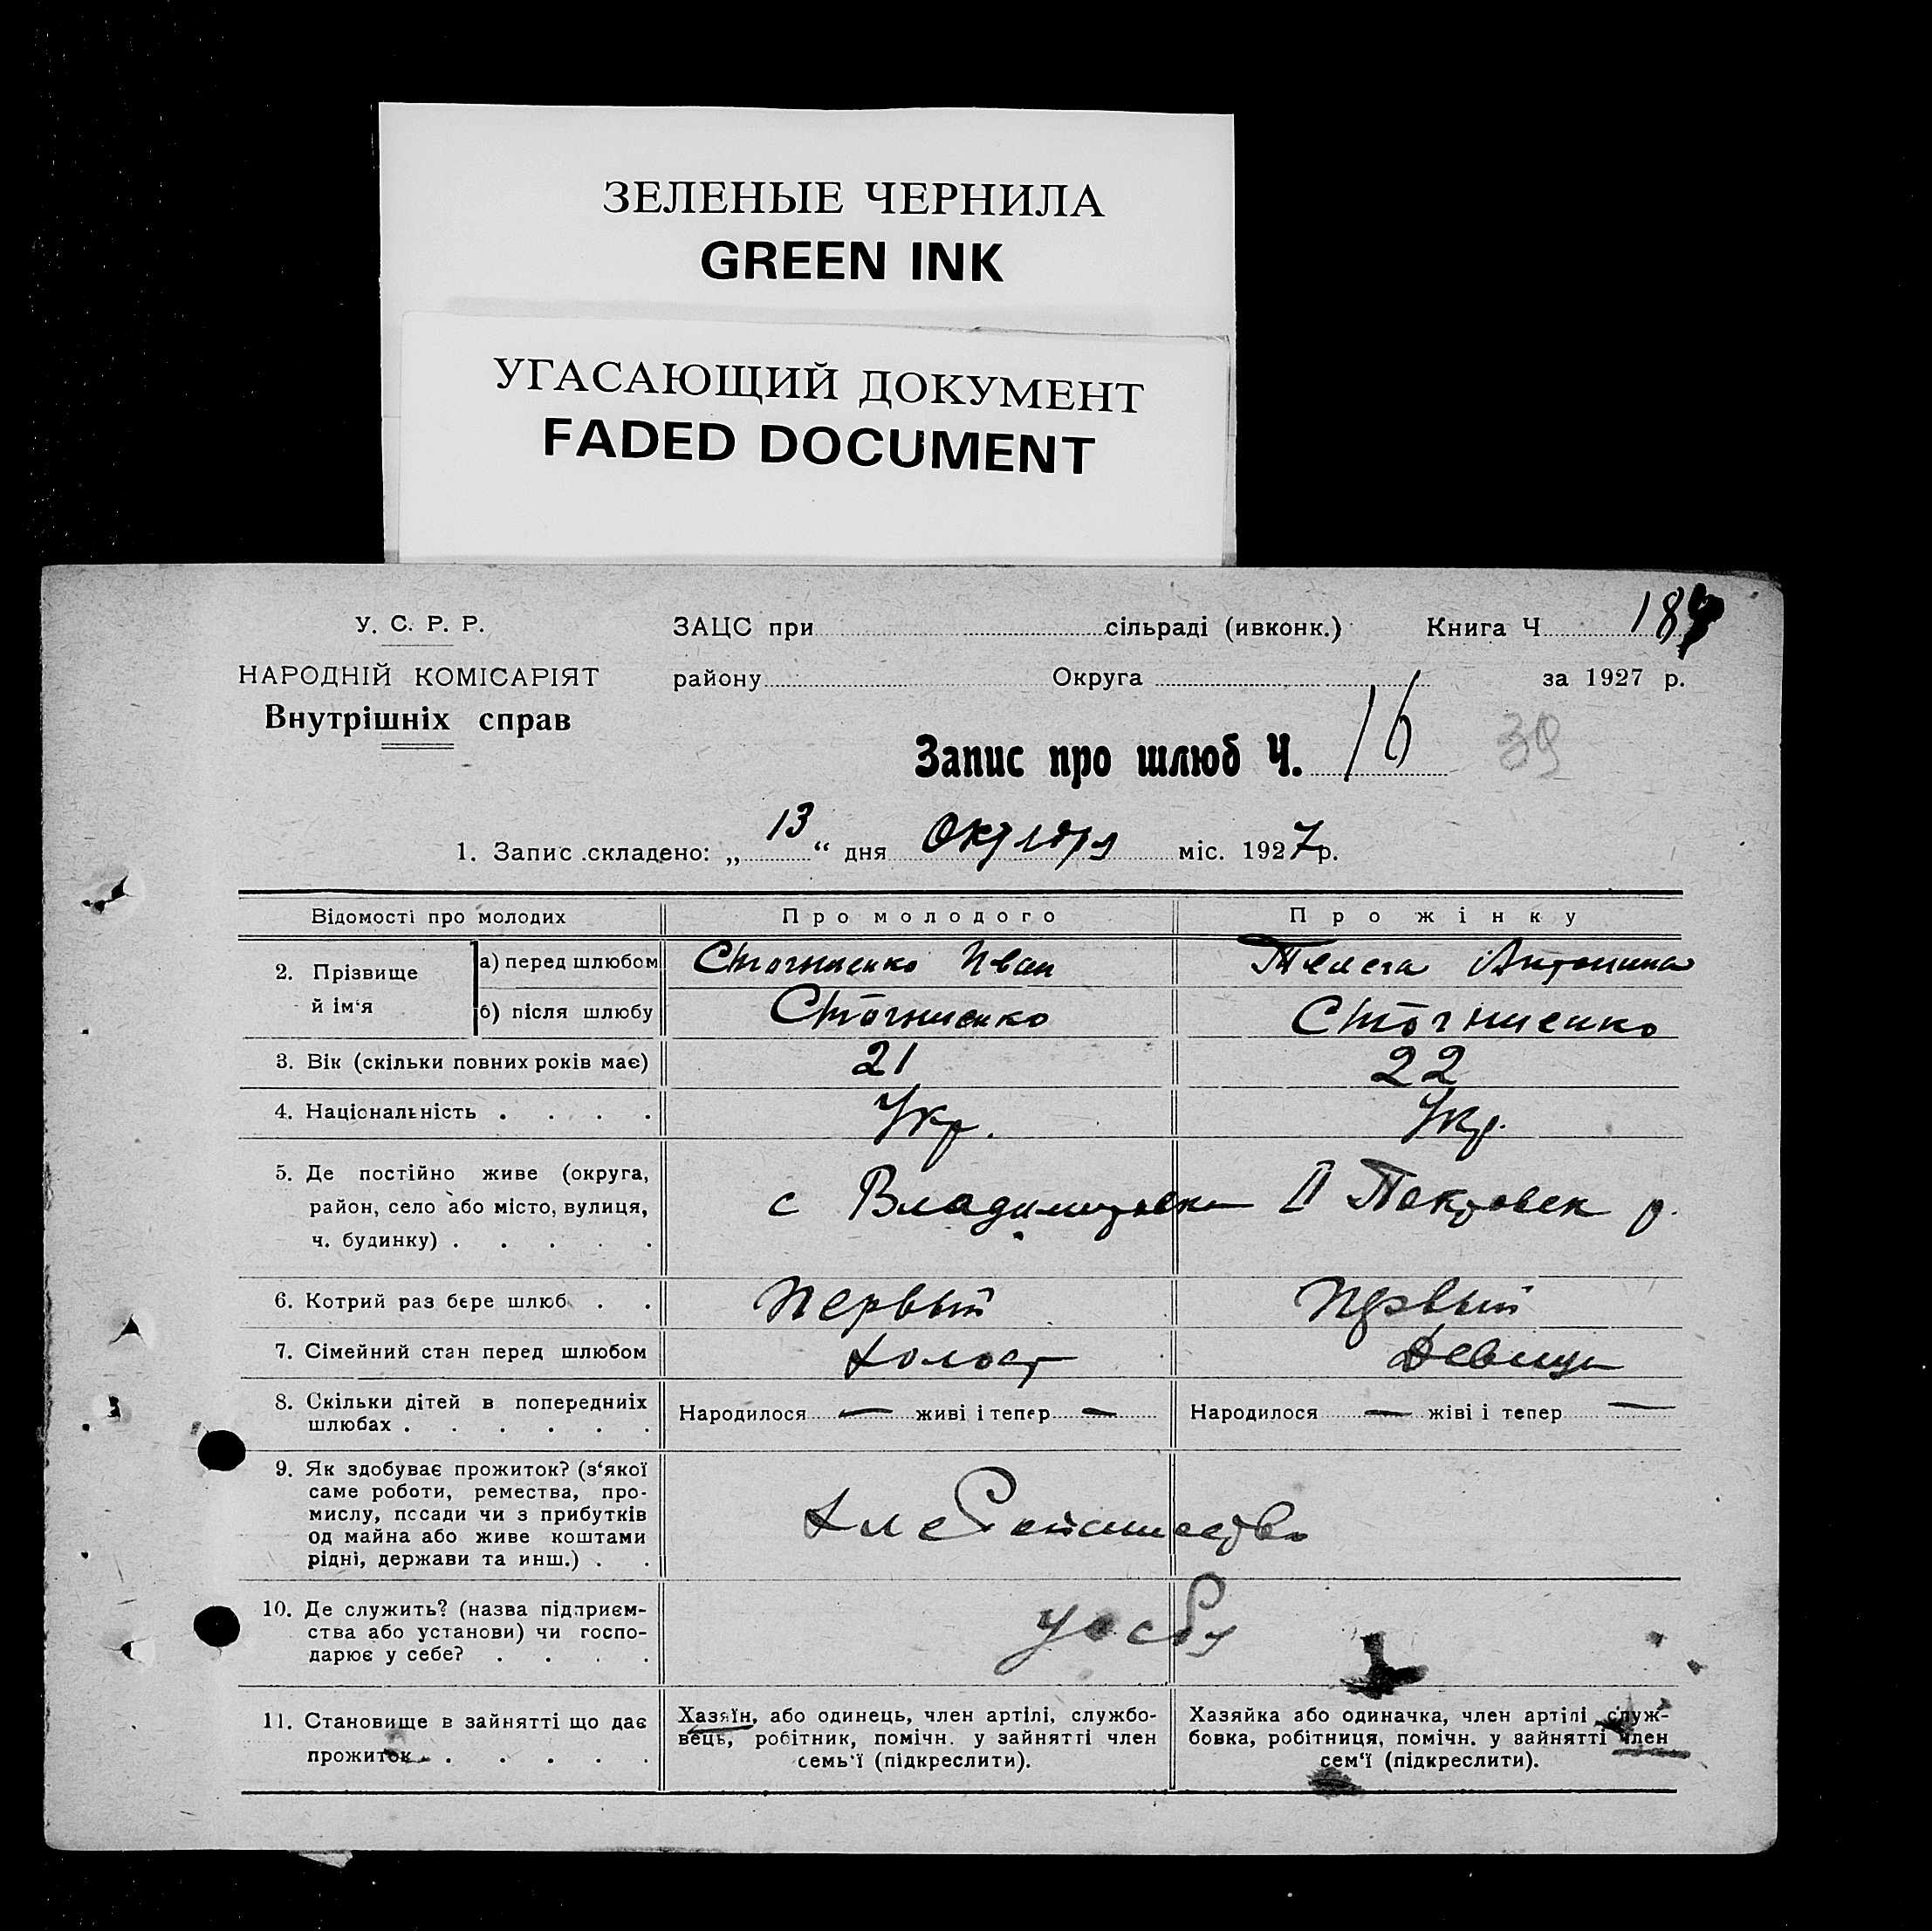 ЗЕЛЕНЫЕ ЧЕРНИЛА
GREEN INK
УГАСАЮЩИЙ ДОКУМЕНТ
FADED DOCUMENT
У. С. Р. Р.
НАРОДНІЙ КОМІСАРІЯТ
Внутрішніх справ
ЗАЦС при сільраді (ивконк.) Книга Ч
району Округа за 1927 р.
Запис про шлюб Ч. 16
39
1. Запис складено: „ 13 “ дня Октября міс. 1927 р.
Відомості про молодих Про молодого Про жінку
2. Прізвище й ім‘я
а) перед шлюбом Стогниенко Иван Телега Антонина
б) після шлюбу Стогниенко Стогниенко
3. Вік (скільки повних років має) 21 22
4. Національність . . . . Укр. Укр.
5. Де постійно живе (округа,
район, село або місто, вулиця,
ч. будинку) . . . . .
с Владимировка II Покровск р.
6. Котрий раз бере шлюб . . Первый Первый
7. Сімейний стан перед шлюбом Холост Девица
8. Скільки дітей в попередниіх
шлюбах . . . . . .
Народилося — живі і тепер — Народилося — жіві і тепер —
9. Як здобуває прожиток? (з‘якої
саме роботи, ремества, про-
мислу, посади чи з прибутків
од майна або живе коштами
рідні, держави та инш.) . .
Хлебопашество
10. Де служить? (назва підприєм-
ства або установи) чи госпо-
дарює у себе? . . . .
у себя
11. Становище в зайнятті що дає
прожиток . . . . . .
Хазяїн, або одинець, член артілі, службо-
вець, робітник, помічн. у зайнятті член
семь‘ї (підкреслити).
Хазяйка або одиначка, член артілі служ-
бовка, робітниця, помічн. у зайнятті член
сем‘ї (підкреслити).